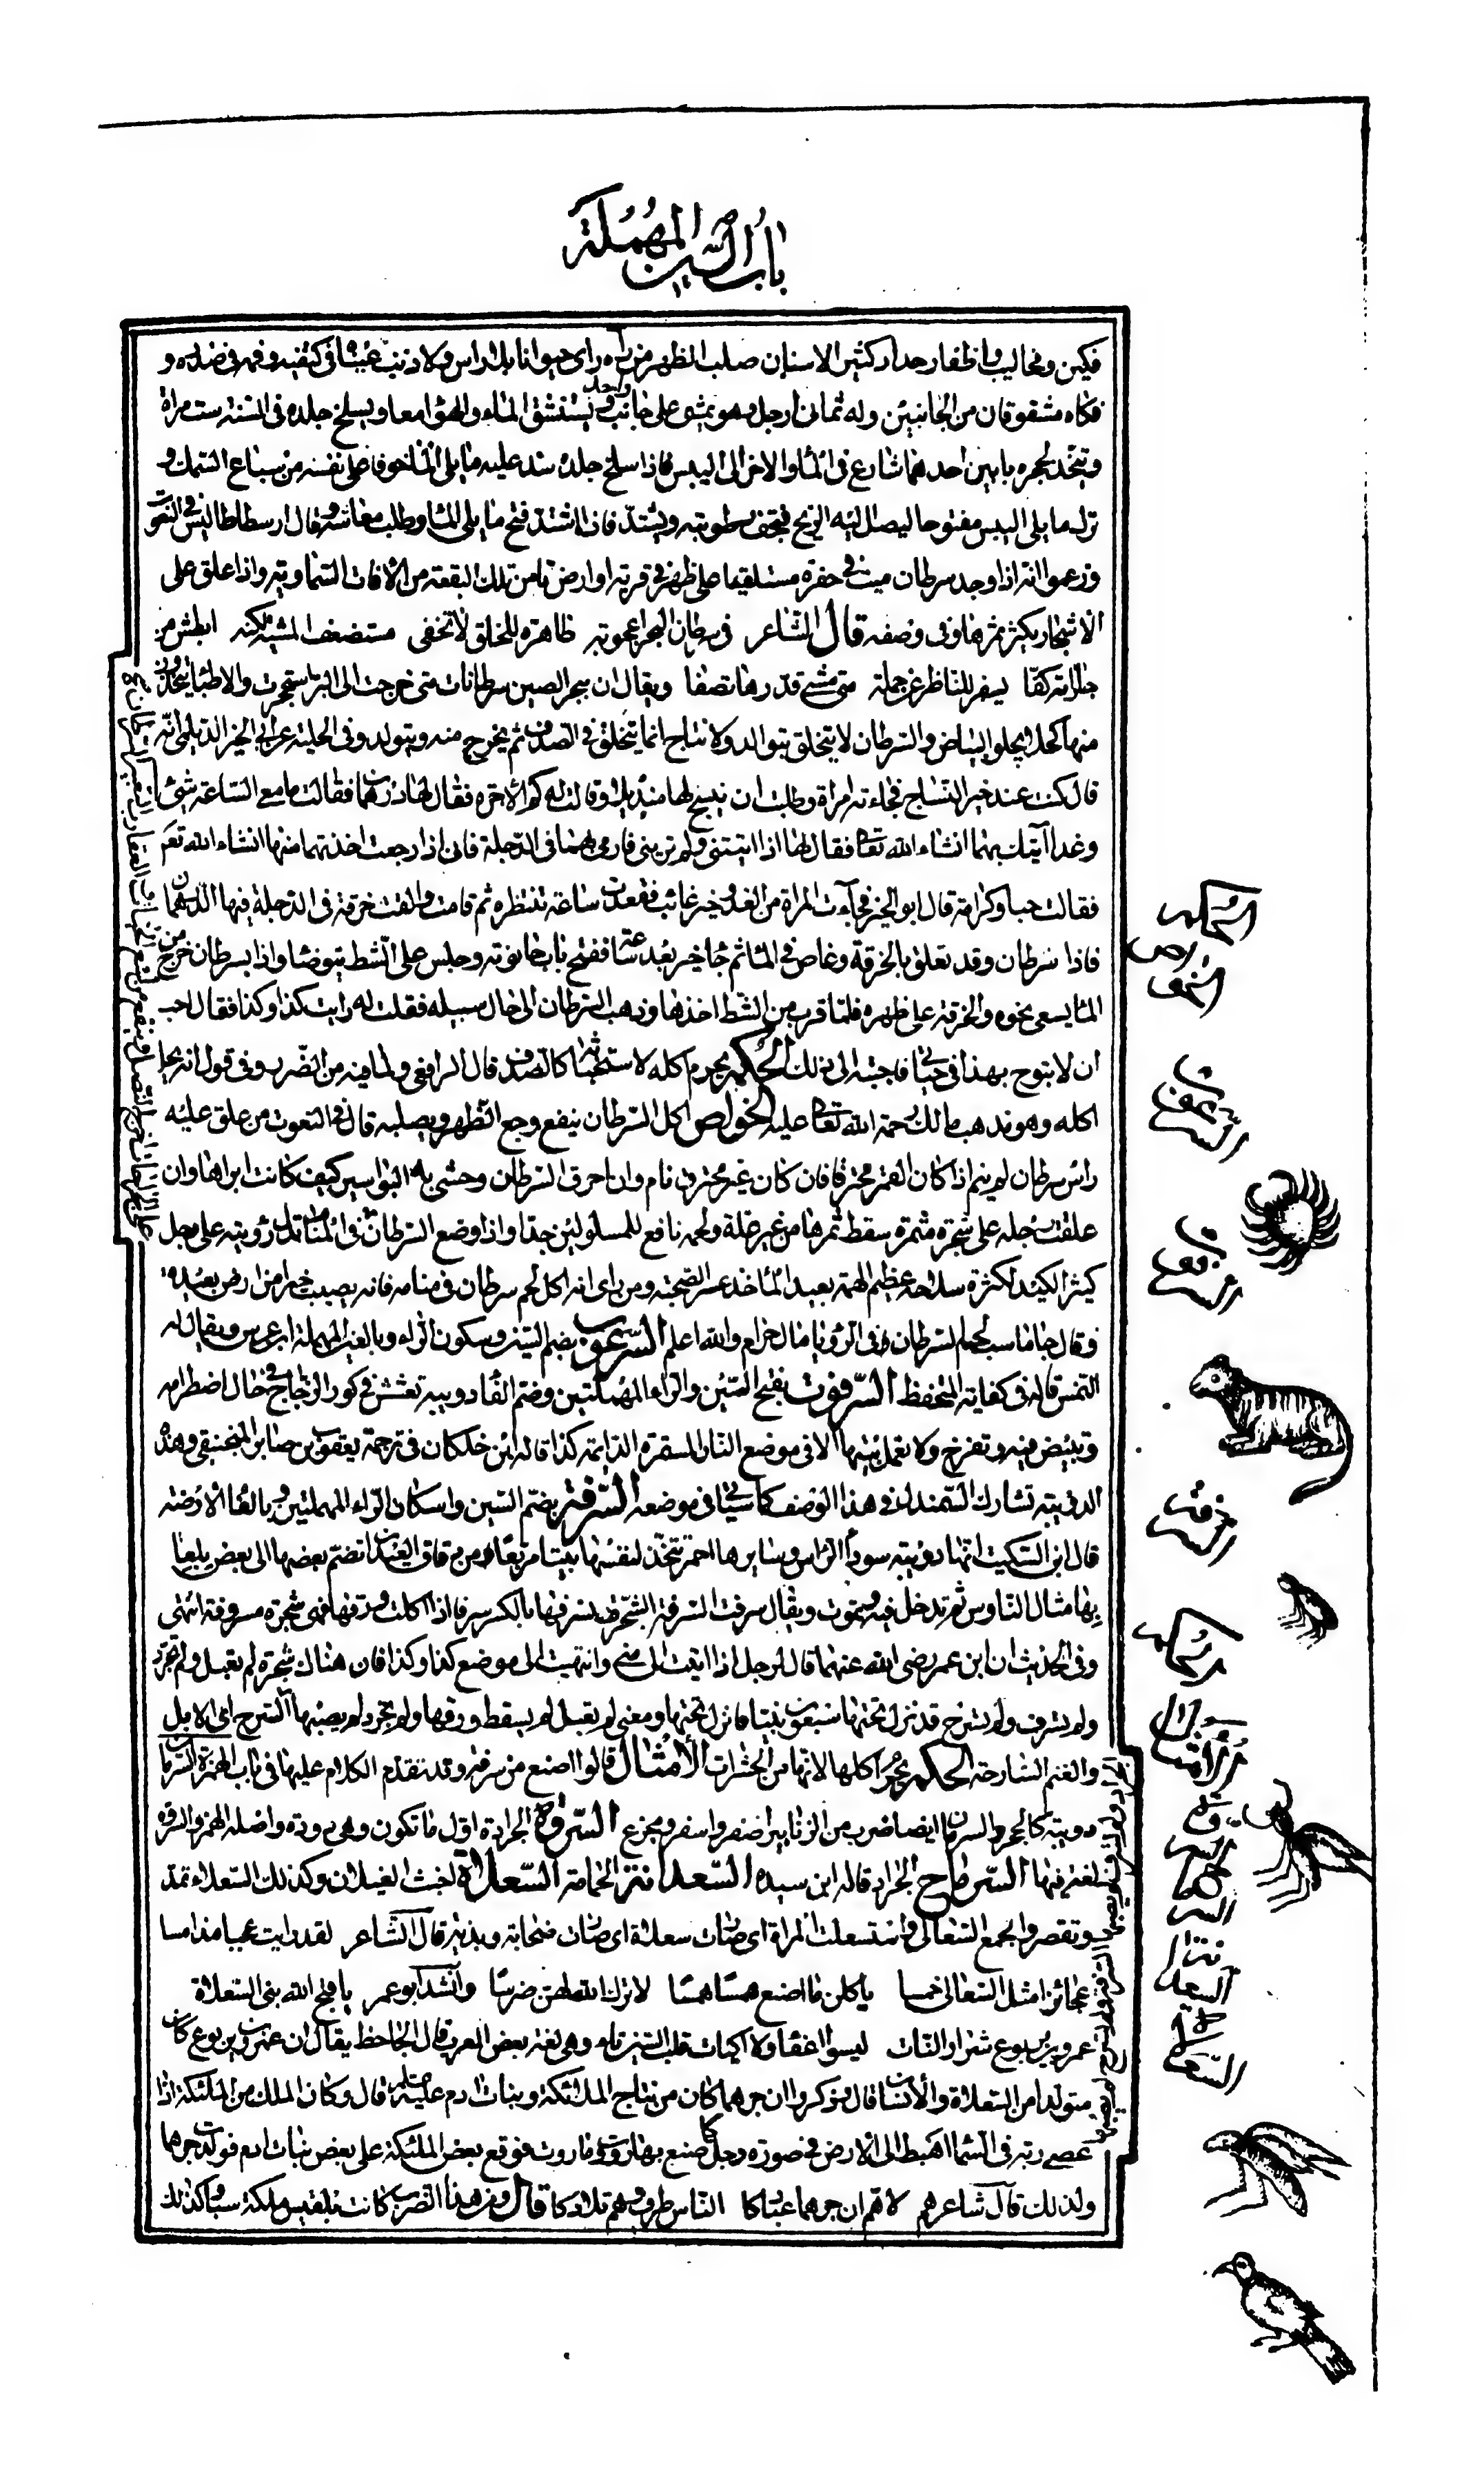 باب السين المهملة
فكين ومخاليب واظفار حداد كثير الاسنان صلب الظهر من رآه راى حيوانا بلا راس ولا ذنب عيناه فى كتفيه وفمه فى صدره و
فكاه مشقوقان من الجانبين وله ثمانى ارجل وهو يمشى على جانب واحد ويستنشق الماء والهوا معا ويسلخ جلده فى السنة ست مراة
ويتخذ لجحره بابين احدهما شارع فى الماء والاخر الى اليبس فاذا سلخ جلده سد عليه ما يلى الماء خوفا على نفسه من سباع السمك و
ترك ما يلى اليبس مفتوحا ليصل اليه الريح فتجف رطوبته ويشتد فاذا اشتد فتح ما يلى الماء وطلب معاشه وقال ارسطاطاليس فى النعوت
وزعموا انه اذا وجد سرطان ميت فى حفرة مستلقيا على ظهره فى قرية او ارض تامن تلك البقعة من الافات السماوية واذا علق على
الاشجار يكثر ثمرها وفى وصفه قال الشاعر فى سرطان البحر اعجوبة ظاهرة للخلق لا تخفى مستضعف المشية لكنه ابطش من
جاراته كفا يسفر للناظر عن جملة متى مشى قدرها نصفا ويقال ان ببحر الصين سرطانات متى خرجت الى البر استحجرت والاطباء يتخذون
منها كحلا يجلو البياض والسرطان لا يتخلق بتوالد ولا نتاج انما يتخلق فى الصدف ثم يخرج منه ويتولد وفى الحلية عن ابى الخير الديلمى انه
قال كنت عند خير النساج فجاءته امراة وطلبت ان ينسج لها منديلا وقالت له كم الاجرة فقال لها درهمان فقالت ما معى الساعة شئ
وغدا آتيك بهما انشاء الله تعالى فقال لها اذا اتيتنى ولم ترينى فارمى بهما فى الدجلة فانى اذا رجعت اخذتهما منها انشاء الله تعالى
فقالت حبا وكرامة قال ابو الخير فجآءت المراة من الغد وخير غائب فقعدت ساعة تنتظره ثم قامت والقت خرقة فى الدجلة فيها الدرهمان
فاذا سرطان وقد تعلق بالخرقة وغاص فى الماء ثم جا خير بعد ساعة ففتح باب حانوته وجلس على الشط يتوضا واذا بسرطان خرج من
الماء يسعى نحوه والخرقة على ظهره فلما قرب من الشط اخذها وذهب السرطان الى حال سبيله فقلت له رايت كذا وكذا فقال احب
ان لا تبوح بهذا فى حياتى فاجبته الى ذلك الحكم يحرم اكله لاستخباثه كالصدف قال الرافعى ولما فيه من الضرر وفى قول انه يحل
اكله وهو مذهب مالك رحمة الله تعالى عليه الخواص اكل السرطان ينفع وجع الظهر ويصلبه قال فى النعوت من علق عليه
راس سرطان لم ينم اذا كان القمر محترقا فان كان غير محترق نام وان احرق السرطان وحشى به البواسير كيف كانت ابراها وان
علقت رجله على شجرة مثمرة سقط ثمرها من غير علة ولحمه نافع للمسلولين جدا واذا وضع السرطان
كثير الكيد لكثرة سلاحه عظيم الهمة بعيد الماخذ عسر الصحبة ومن راى انه اكل لحم سرطان فى منامه فانه يصيب خيرا من ارض بعيدة
وقال جاماسب لحم السرطان فى الرؤيا مال حرام والله اعلم السرعوب بضم السين وسكون الراء وبالعين المهملة ابن عرس ويقال له
النمس قاله فى كفاية المتحفظ السرفوت بفتح السين والراء المهملتين وضم الفاء دويبة تعشش فى كور الزجاج فى حال اضطرامه
وتبيض فيه وتفرخ ولا تعمل بيتها الا فى موضع النار المستمرة الدائمة كذا قاله ابن خلكان فى ترجمة يعقوب بن صابر المنجنيقى وهذه
الدويبة تشارك السمندل فى هذا الوصف كما سياتى فى موضعه السرفة بضم السين واسكان الراء المهملتين وبالفاء الارضة
قال ابن السكيت انها دويبة سودا الراس وسايرها احمر تتخذ لنفسها بيتا مربعا من دقاق العيدان تضم بعضها الى بعض بلعابها
مثال الناوس ثم تدخل فيه وتموت ويقال سرفت السرفة الشجرة تسرفها بالكسر سرفا اذا اكلت ورقها فهى شجرة مسروفة انتهى
وفى الحديث ان ابن عمر رضى الله عنهما قال لرجل اذا اتيت الى منى وانتهيت الى موضع كذا وكذا فان هناك شجرة لم تعبل ولم تجرد
ولم تسرف ولم تسرح قد نزل تحتها سبعون نبيا فانزل تحتها ومعنى لم تعبل لم يسقط ورقها ولم تجرد لم يصبها السرح اى الابل
والغنم السارحة الحكم يحرم اكلها لانها من الحشرات الامثال قالوا اصنع من سرفة وقد تقدم الكلام عليها فى باب الهمزة السرمان
دويبة كالحجل والسرمان ايضا ضرب من الزنابير اصفر واسود ومجزع السروة الجرادة اول ما تكون وهى دودة واصله الهمز والسروة
لغة فيها السرماح الجراد قاله ابن سيده السعدانة الحمامة السعلاة اخبث الغيلان وكذلك السعلاء تمد
وتقصر والجمع السعالى واستسعلت المراة اى صارت سعلاة اى صارت صخابة وبذية قال الشاعر لقد رايت عجبا مذ امسا
عجائزا مثل السعالى خمسا ياكلن ما اصنع همسا همسا لا ترك الله لهن ضرسا وانشد ابو عمر يا قبح الله بنى السعلاة
عمرو بن يربوع شرار النات ليسوا اعفاء ولا اكيات قلب السين تاء وهى لغة بعض العرب قال الجاحظ يقال ان عمرو بن يربوع كان
متولدا من السعلاة والانسان قال وذكروا ان جرهما كان من نتاج الملائكة وبنات ادم عليه السلام قال وكان الملك من الملئكة اذا
عصى ربه فى السما اهبط الى الارض فى صورة رجل كما صنع بهاروت وماروت فوقع بعض الملئكة على بعض بنات ادم فولدت جرهما
ولذلك قال شاعرهم لاهم ان جرهما عبادكا الناس طرف وهم تلادكا قال ومن هذا الضرب كانت بلقيس ملكة سبا وكذلك
السرعوب
السرفوت
السرفة
السعدانة
السعلاة